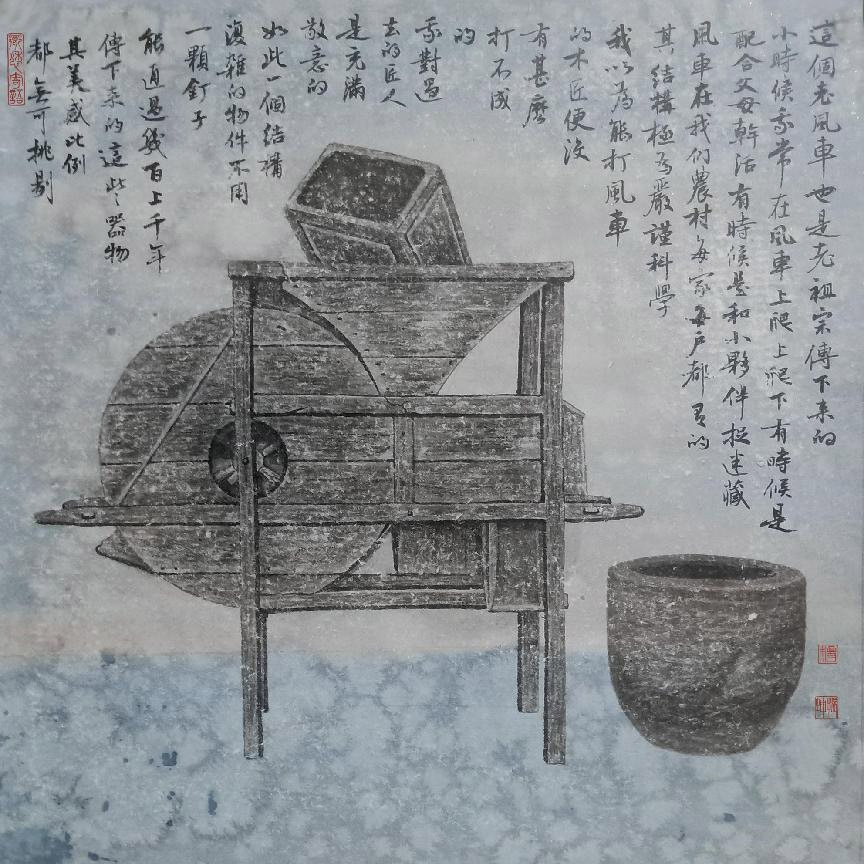 這個老風車也是老祖宗傳下来的
小時候我常在風車上爬上爬下有時候是
配合父母幹活有時候是和小夥伴捉迷藏
風車在我们農村每家每户都有的
其結構極為嚴謹科學
我以為能打風車
的木匠便没
有甚麽
打不成
的
我對過
去的匠人
是充滿
敬意的
如此一個結構
復雜的物件不用
一顆釘子
能通過幾百上千年
傳下来的這些器物
其美感比例
都無可挑剔